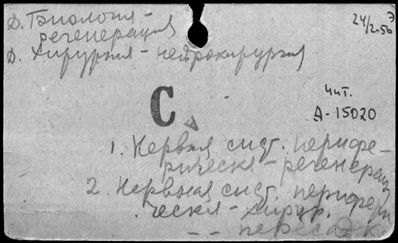 Д. Биология -
регенерация
Д. Хирургия - нейрохирургия
24/2-56
Э
С
Чит.
А-15020
1. Нервная сист. перифе-
рическая - регенерац
2. Нервная сист. перифери
ческая - хирур.
- - пересадк